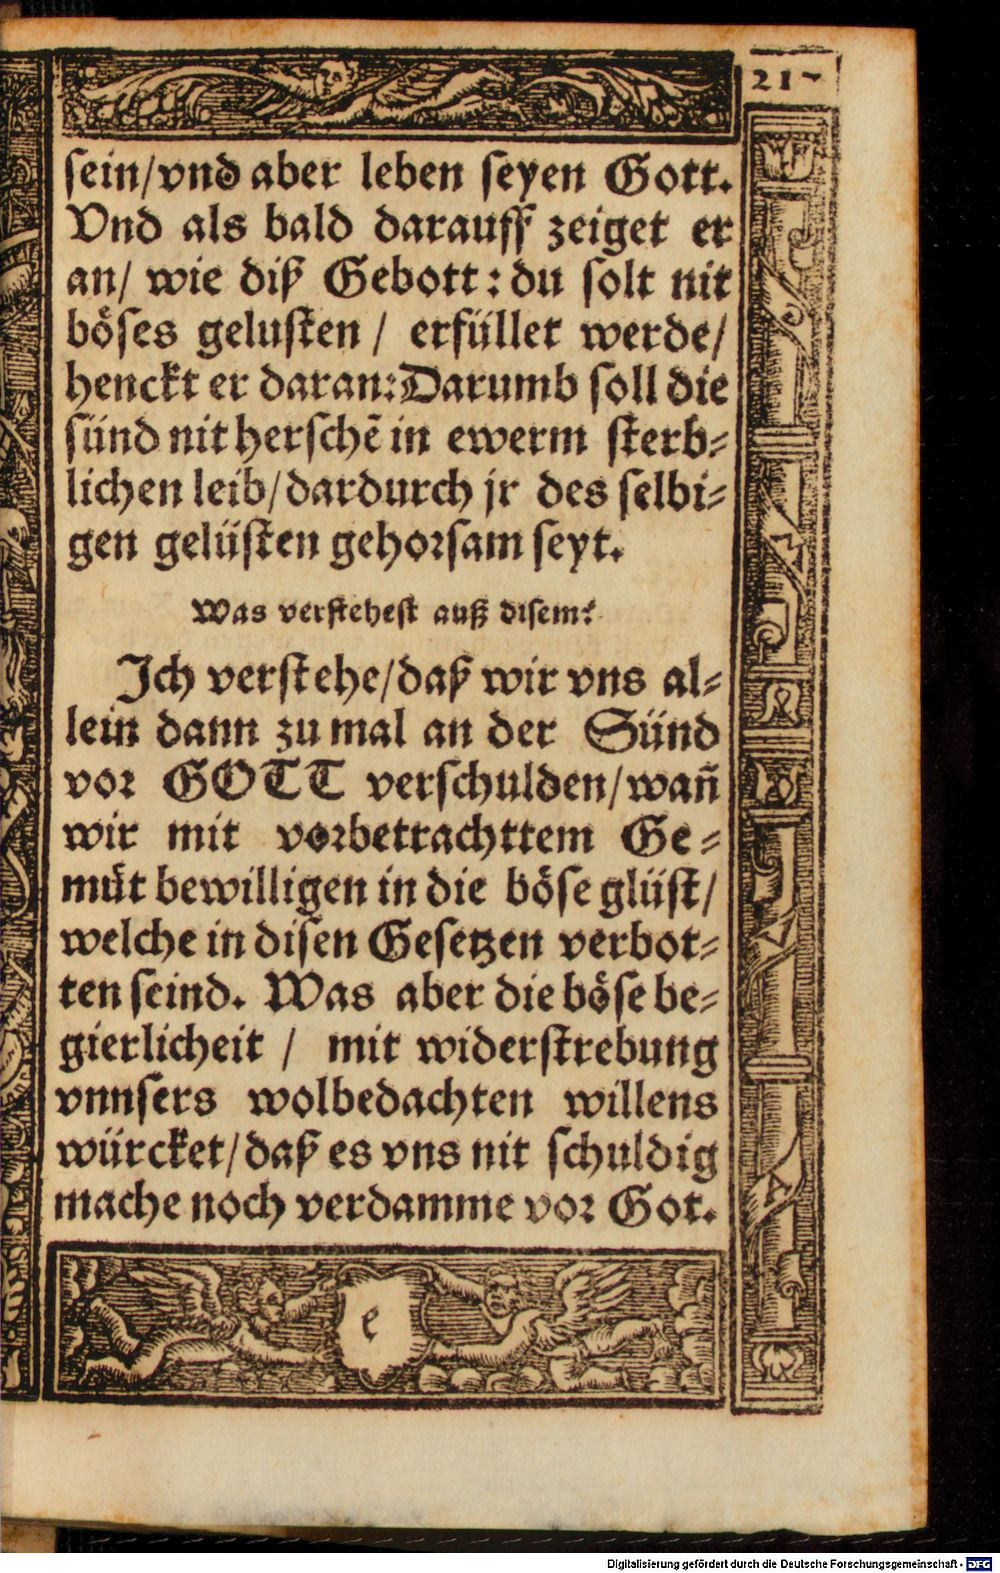 21
sein/vnd aber leben seyen Gott.
Vnd als bald darauff zeiget er
an/ wie diß Gebott: du solt nit
böses gelusten / erfüllet werde/
henckt er daran: Darumb soll die
sünd nit herschē in ewerm sterb-
lichen leib/dardurch jr des selbi-
gen gelüsten gehorsam seyt.
Was verstehest auß disem?
Ich verstehe/daß wir vns al-
lein dann zu mal an der Sünd
vor GOTT verschulden/wañ
wir mit vorbetrachttem Ge-
müt bewilligen in die böse glüst/
welche in disen Gesetzen verbot-
ten seind. Was aber die böse be-
gierlicheit / mit widerstrebung
vnnsers wolbedachten willens
würcket/daß es vns nit schuldig
mache noch verdamme vor Got.
e
Digitalisierung gefördert durch die Deutsche Forschungsgemeinschaft - DFG